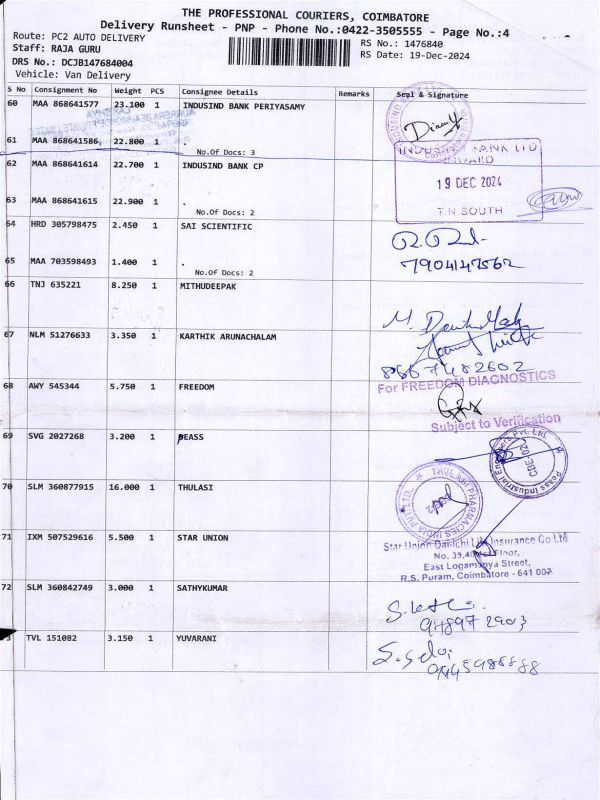 THE PROFESSIONAL COURIERS, COIMBATORE
Delivery Runsheet - PNP - Phone No.:0422-3505555 - Page No.:4
Route: PC2 AUTO DELIVERY
RS No.: 1476840
Staff: RAJA GURU
RS Date: 19-Dec-2024
DRS No.: DCJB147684004
Vehicle: Van Delivery
S No Consignment No Weight PCS Consignee Details Remarks Seal & Signature
60 MAA 868641577 23.100 1 INDUSIND BANK PERIYASAMY
61 MAA 868641586 22.800 1 .
No.Of Docs: 3
INDUSIND BANK LTD
INWARD
62 MAA 868641614 22.700 1 INDUSIND BANK CP
19 DEC 2024
63 MAA 868641615 22.900 1 .
No.Of Docs: 2
T.N.SOUTH
64 HRD 305798475 2.450 1 SAI SCIENTIFIC
65 MAA 703598493 1.400 1 .
7904147562
No.Of Docs: 2
66 TNJ 635221 8.250 1 MITHUDEEPAK
67 NLM 51276633 3.350 1 KARTHIK ARUNACHALAM
8667482602
For FREEDOM DIAGNOSTICS
68 AWY 545344 5.750 1 FREEDOM
Subject to Verification
69 SVG 2027268 3.200 1 PEASS
Peass Industrial Engineers Pvt. Ltd.
70 SLM 360877915 16.000 1 THULASI
THULASI PHARMACIES INDIA PVT. LTD.
71 IXM 507529616 5.500 1 STAR UNION
Star Union Dai-ichi Life Insurance Co Ltd
No. 39, Floor,
East Logamanya Street,
R.S. Puram, Coimbatore - 641 002
72 SLM 360842749 3.000 1 SATHYKUMAR
TVL 151082 3.150 1 YUVARANI